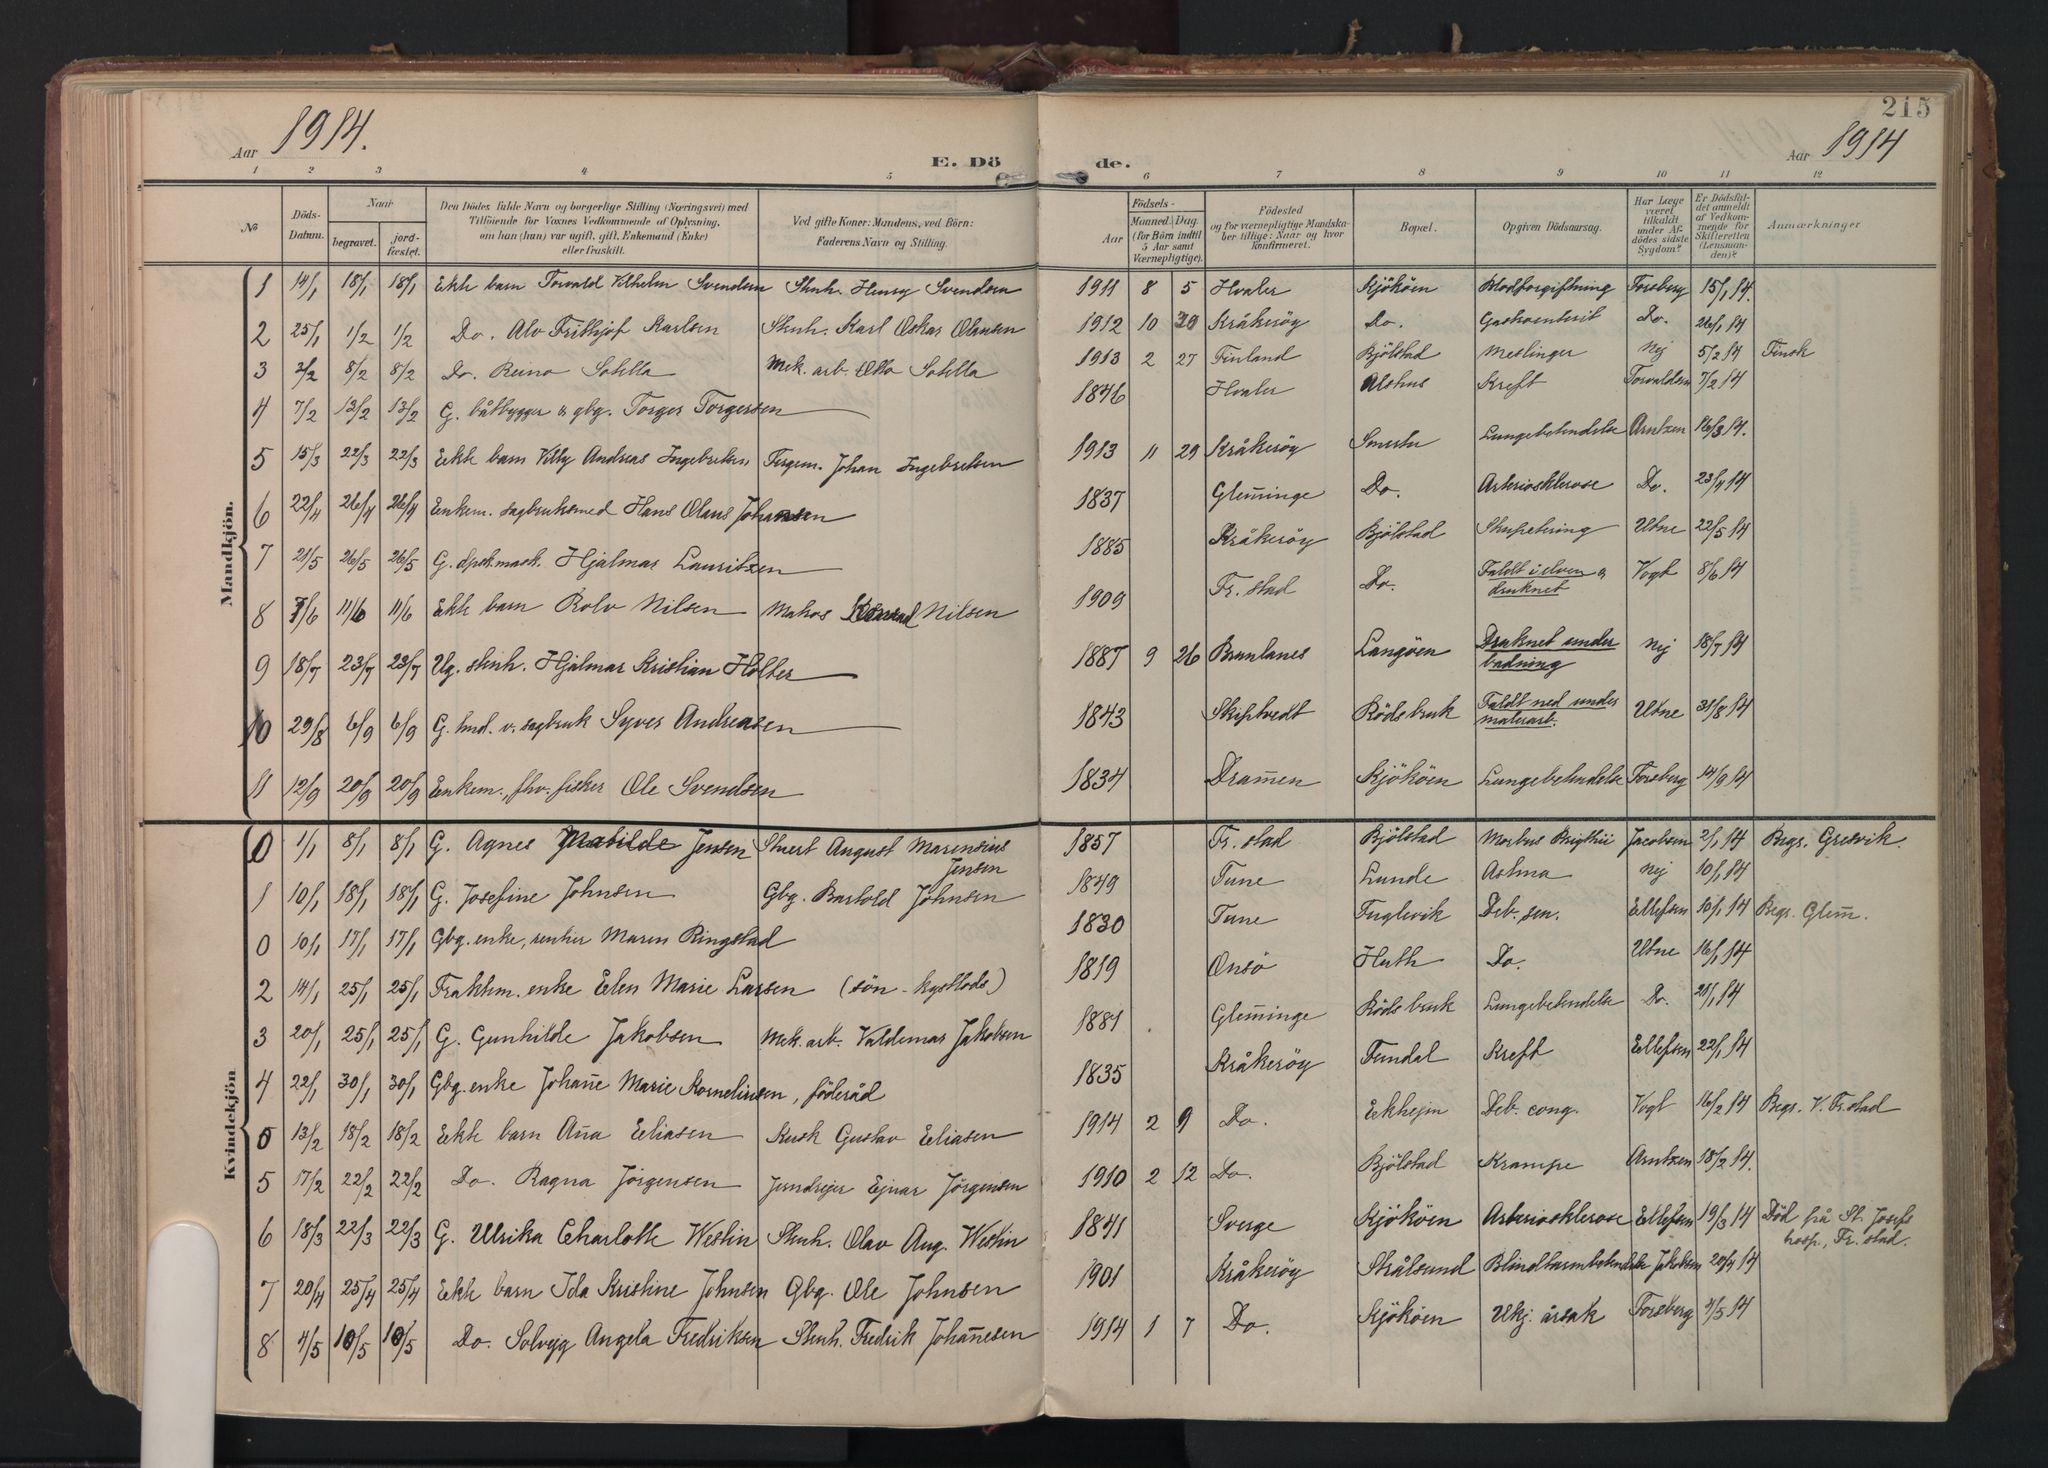 215
Aar 1914. E. Döde. Aar 1914
1 2 3 4 5 6 7 8 9 10 11 12
№ Döds-Datum. Naar begravet. jordfæstet. Den Dödes fulde Navn og borgerlige Stilling (Næringsvei) med Tilföiende for Voxnes Vedkommende af Oplysning, om han (hun) var ugift, gift, Enkemand (Enke) eller fraskilt. Ved gifte Koner: Mandens, ved Börn: Faderens Navn og Stilling. Aar Födsels- Maaned. Dag. (for Börn indtil 5 Aar samt Værnepligtige). Födested og for værnepligtige Mandskaber tillige: Naar og hvor konfirmeret. Bopæl. Opgiven Dödsaarsag. Har Læge været tilkaldt under Afdödes sidste Sygdom? Er Dödsfaldet anmeldt af Vedkommende for Skifteretten (Lensmanden)? Anmærkninger
Mandkjön.
1 14/1 18/1 18/1 Ekte barn Torvald Vilhelm Svendsen Skuh. Henry Svendsen 1911 8 5 Hvaler Kjököen Blodforgiftning Forsberg 15/1 14.
2 25/1 1/2 1/2 Do. Alv Frithjof Karlsen Skuh. Karl Oskar Olausen 1912 10 Kråkeröy Do. Gastroenterit Do. 26/1 14
3 2/2 8/2 8/2 Do. Reino Mek. arb. Otto 1913 2 27 Finland Bjölstad Meslinger Nej 5/2 14 Finsk
4 7/2 13/2 13/2 G. båtbygger & gbg. Torger Torgersen 1846 Hvaler Alshus Kreft Torvaldsen 7/2 14
5 15/3 22/3 22/3 Ekte barn Villy Andreas Ingebretsen Fergem. Johan Ingebretsen 1913 11 29 Kråkeröy Smertu Lungebetendelse Arntzen 16/3 14.
6 22/4 26/4 26/4 Enkem. sagbruksmed Hans Olaus Johansen 1837 Glem̄inge Do. Arteriosklerose Do. 23/4 14
7 21/5 26/5 26/5 G. Hjalmar Lauritzen 1885 Kråkeröy Bjölstad Utne 22/5 14
8 7/6 11/6 11/6 Ekte barn Rolv Nilsen Nilsen 1909 Fr. stad Do. Faldt i elven & druknet Vogt 8/6 14
9 18/7 23/7 23/7 Ug. skuh. Hjalmar Kristian Holter 1887 9 26 Brunlanes Langöen Druknet under badning Nej 18/7 14
10 29/8 6/9 6/9 G. hmd. v. sagbruk Syver Andreasen 1843 Skiptvedt Rödsbruk Faldt ned under malerarb. Utne 31/8 14
11 12/9 20/9 20/9 Enkem., fhv. fisker Ole Svendsen 1834 Dram̄en Kjököen Lungebetendelse Forsberg 14/9 14
Kvindekjön
0 1/1 8/1 8/1 G. Agnes Matilde Jensen Stuert August Marensius Jensen 1857 Fr. stad Bjölstad Morbus Brigthii Jacobsen 2/1 14 Begr. Gresvik.
1 10/1 18/1 18/1 G. Josefine Johnsen Gbg. Bartold Johnsen 1849 Tune Lunde Astma Nej 10/1 14
0 10/1 17/1 17/1 Gbg. enke, rentier Maren Ringstad 1830 Tune Fuglevik Deb. sen. Ellefsen 10/1 14 Begr. Glem̄.
2 14/1 25/1 25/1 Frakthm. enke Elen Marie Larsen (sön - kystlods) 1819 Onsö Huth Do. Utne 16/1 14
3 20/1 25/1 25/1 G. Gunhilde Jakobsen Mek. arb. Valdemar Jakobsen 1881 Glem̄inge Röds bruk Lungebetendelse Do. 21/1 14
4 22/1 30/1 30/1 Gbg. enke Johan̄e Marie Kornelinsen, föderåd 1835 Kråkeröy Fundal Kreft Ellefsen 22/1 14
0 13/2 18/2 18/2 Ekte barn An̄a Eliasen Kusk Gustav Eliasen 1914 2 9 Do. Ekhejm Deb. cong. Vogt 16/2 14 Begr. V. Fr.stad
5 17/2 22/2 22/2 Do. Ragna Jörgensen Jerndrejer Ejnar Jörgensen 1910 2 12 Do. Bjölstad Krampe Arntzen 18/2 14.
6 18/3 22/3 22/3 G. Ulrika Charlotte Westin Skuh. Olav Aug. Westin 1841 Sverge Kjököen Arteriosklerose Ellefsen 19/3 14 Död på St. Josefs hosp., Fr. stad.
7 20/4 25/4 25/4 Ekte barn Ida Kristine Johnsen Gbg. Ole Johnsen 1901 Kråkeröy Stålsund Blindtarmbetendelse Jakobsen 20/4 14
8 4/5 10/5 10/5 Do. Solvejg Angela Fredriksen Skuh. Fredrik Johan̄esen 1914 1 7 Do. Kjököen Ukj. årsak Forsberg 4/5 14